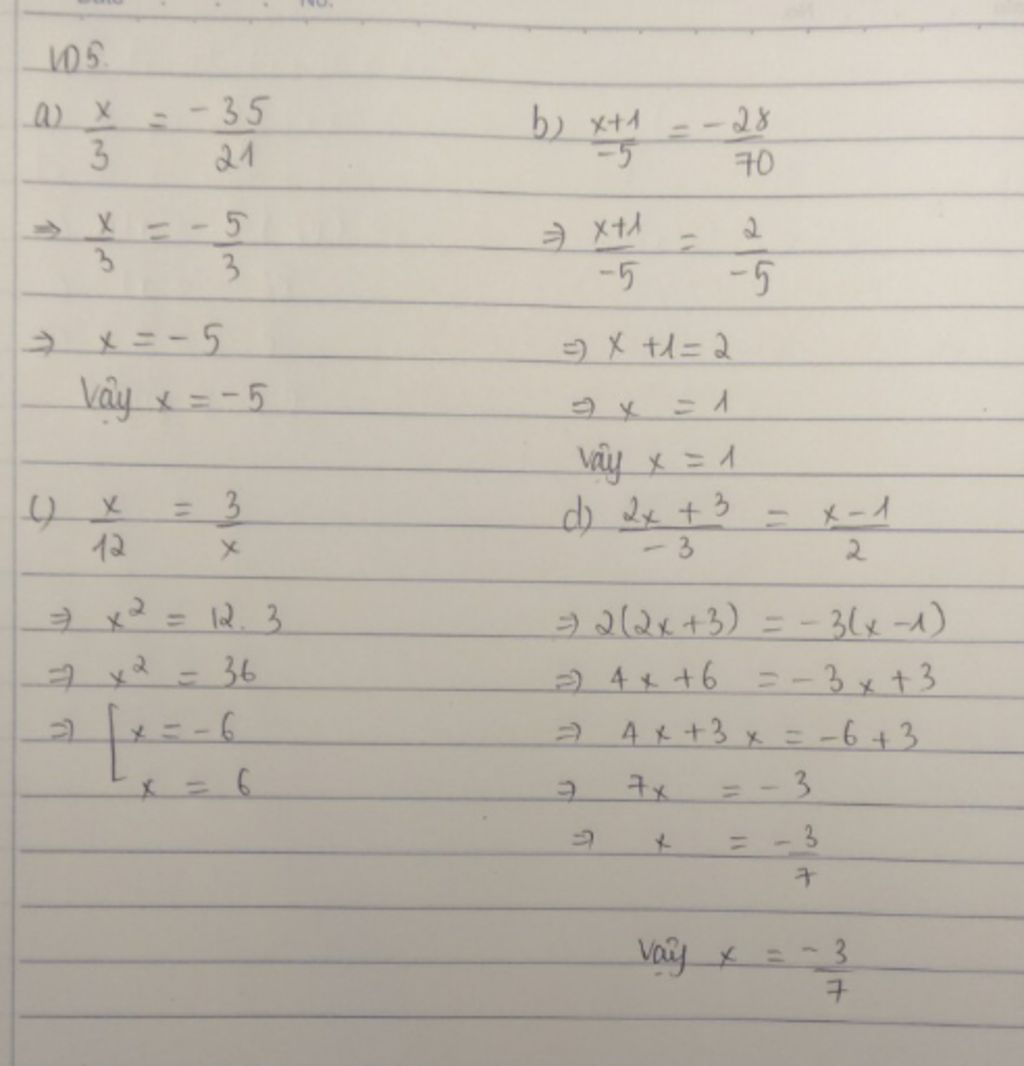 VD5.
a) x/3 = -35/21
⇒ x/3 = -5/3
⇒ x = -5
Vậy x = -5
b) x+1/-5 = -28/70
⇒ x+1/-5 = 2/-5
⇒ x +1 = 2
⇒ x = 1
Vậy x = 1
c) x/12 = 3/x
⇒ x² = 12.3
⇒ x² = 36
⇒ [x = -6
x = 6
d) 2x + 3/-3 = x-1/2
⇒ 2(2x+3) = -3(x-1)
⇒ 4x+6 = -3x+3
⇒ 4x+3x = -6+3
⇒ 7x = -3
⇒ x = -3/7
Vậy x = -3/7